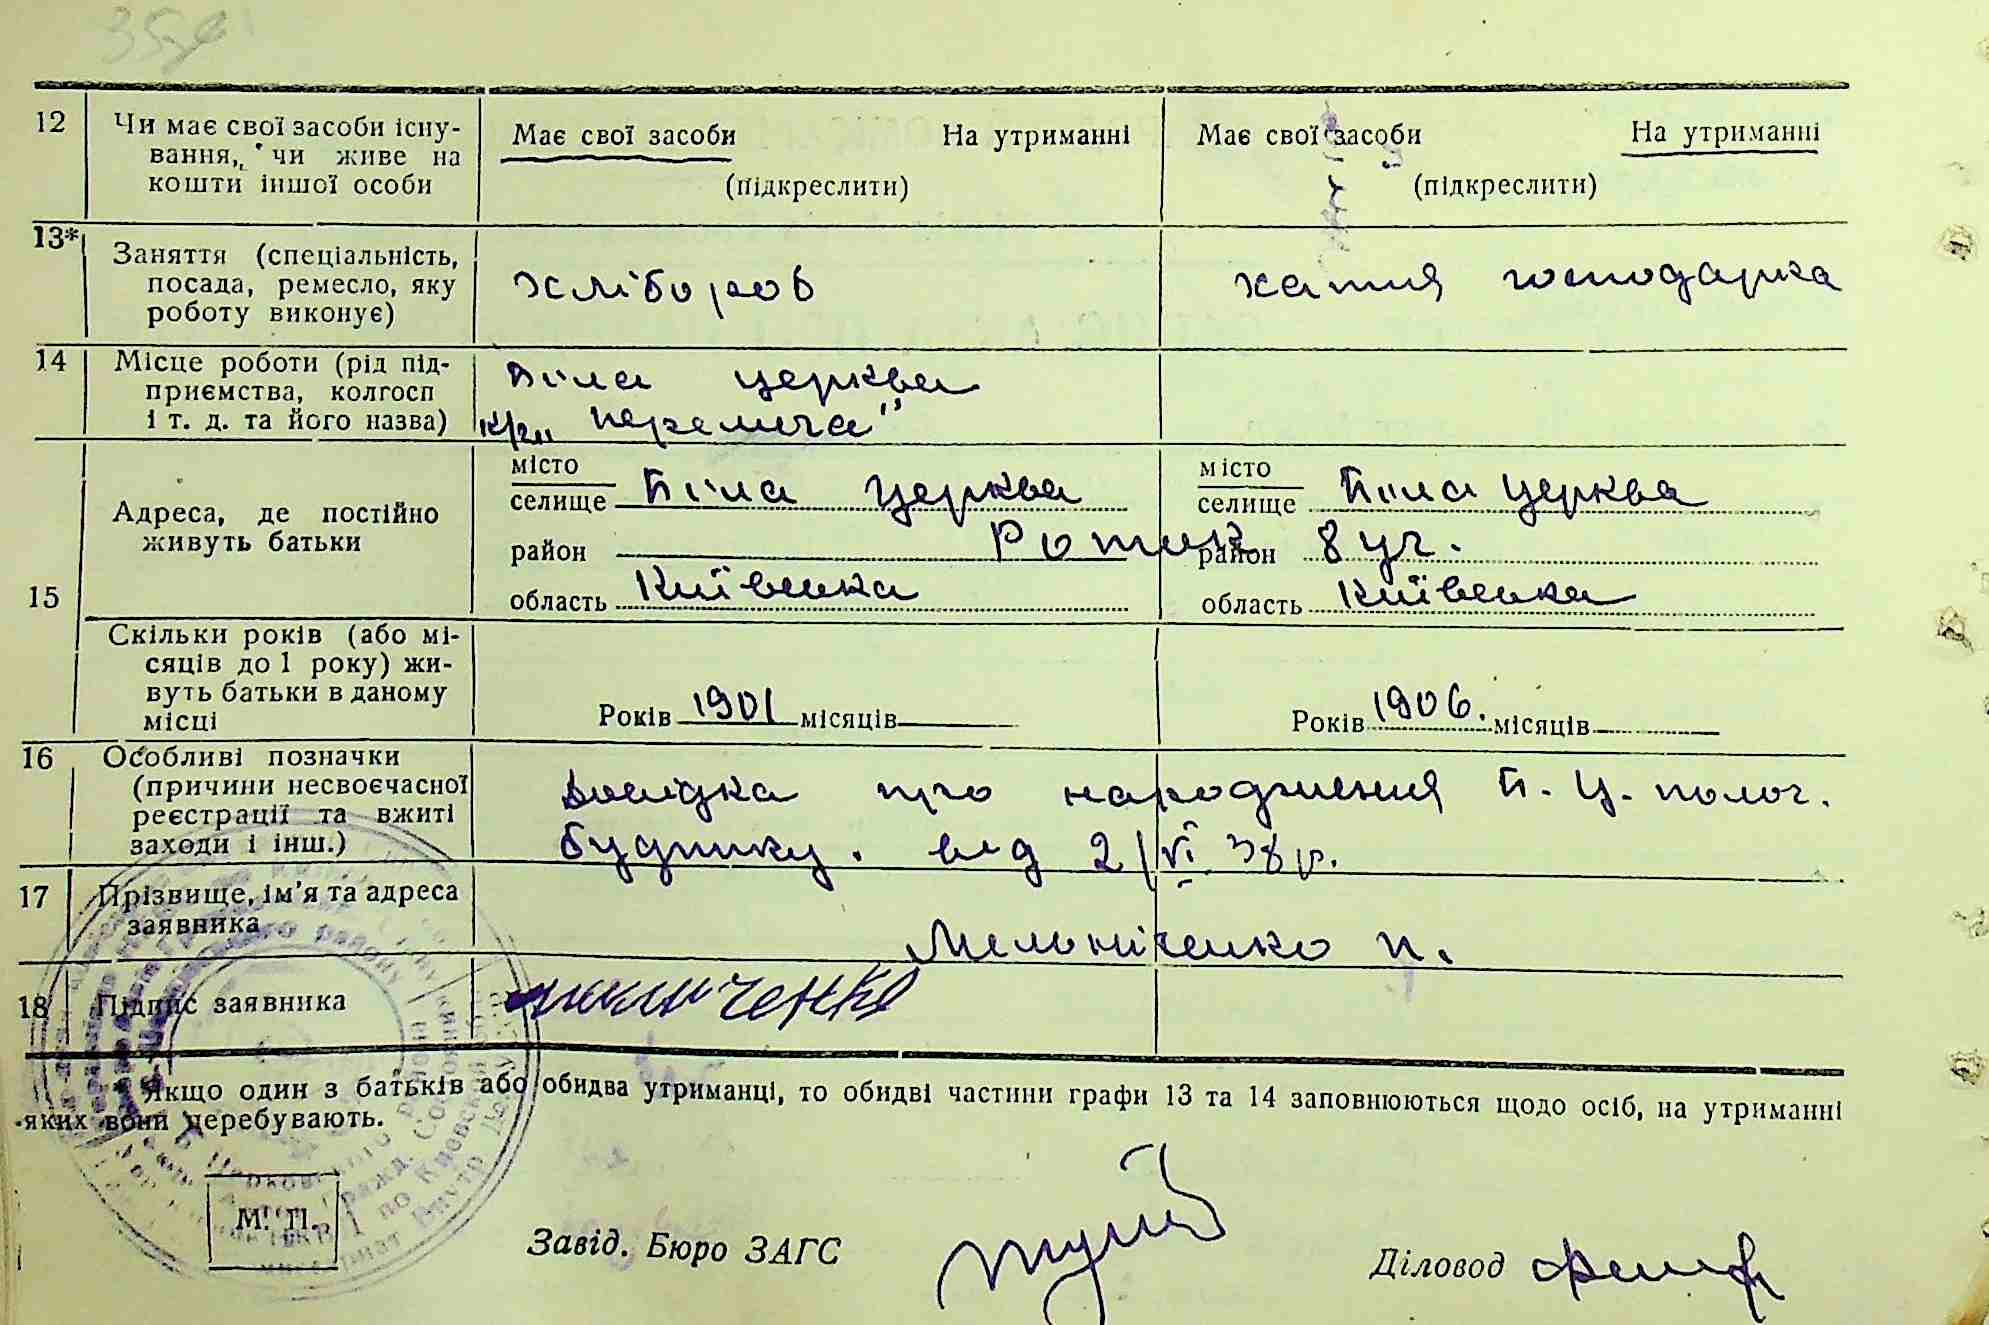 12 Чи має свої засоби існу-
вання, чи живе на
кошти іншої особи
Має свої засоби На утриманні
(підкреслити)
Має свої засоби На утриманні
(підкреслити)
13* Заняття (спеціальність,
посада, ремесло, яку
роботу виконує)
хлібороб
хатня господарка
14 Місце роботи (рід під-
приємства, колгосп
і т. д. та його назва)
Біла церква
к/г „перемога"
15
Адреса, де постійно
живуть батьки
місто
селище Біла церква
район
область Київська
місто
селище Біла церква
Роток 8 уч.
район
область Київська
Скільки років (або мі-
сяців до 1 року) жи-
вуть батьки в даному
місці
Років 1901 місяців
Років 1906. місяців
16 Особливі позначки
(причини несвоєчасної
реєстрації та вжиті
заходи і інш.)
Довідка про народження Б. Ц. полог.
будинку. від 2/VI 38 р.
17 Прізвище, ім'я та адреса
заявника
Мельніченко П.
18 Підпис заявника
* Якщо один з батьків або обидва утриманці, то обидві частини графи 13 та 14 заповнюються щодо осіб, на утриманні
яких вони перебувають.
М. П.
Завід. Бюро ЗАГС
Діловод